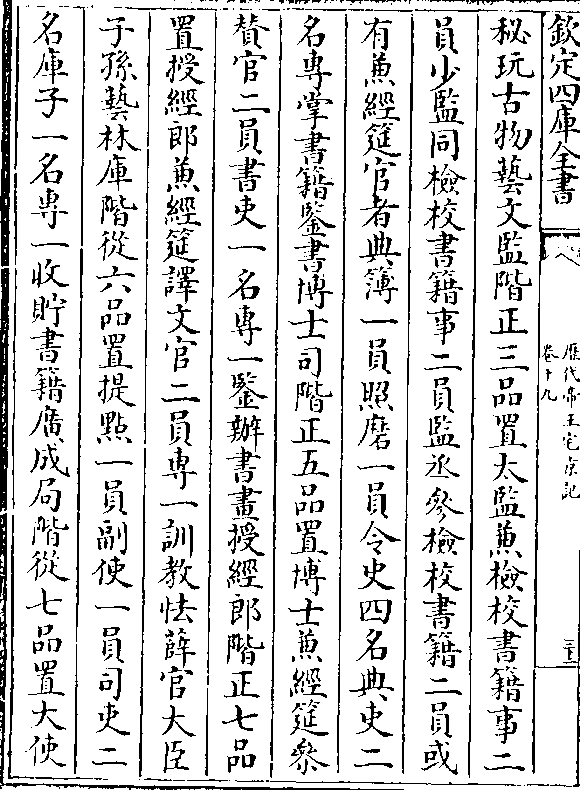 欽定四庫全書
歷代帝王宅京記
卷十九
秘玩古物藝文監階正三品置太監兼檢校書籍事二
員少監同檢校書籍事二員監丞參檢校書籍二員或
有兼經筵官者典簿一員照磨一員令史四名典吏二
名專掌書籍鑒書博士司階正五品置博士兼經筵叅
賛官二員書吏一名專一鑒辦書畫授經郎階正七品
置授經郎兼經筵譯文官二員專一訓教怯薛官大臣
子孫藝林庫階從六品置提點一員副使一員司吏二
名庫子一名専一收貯書籍廣成局階從七品置大使